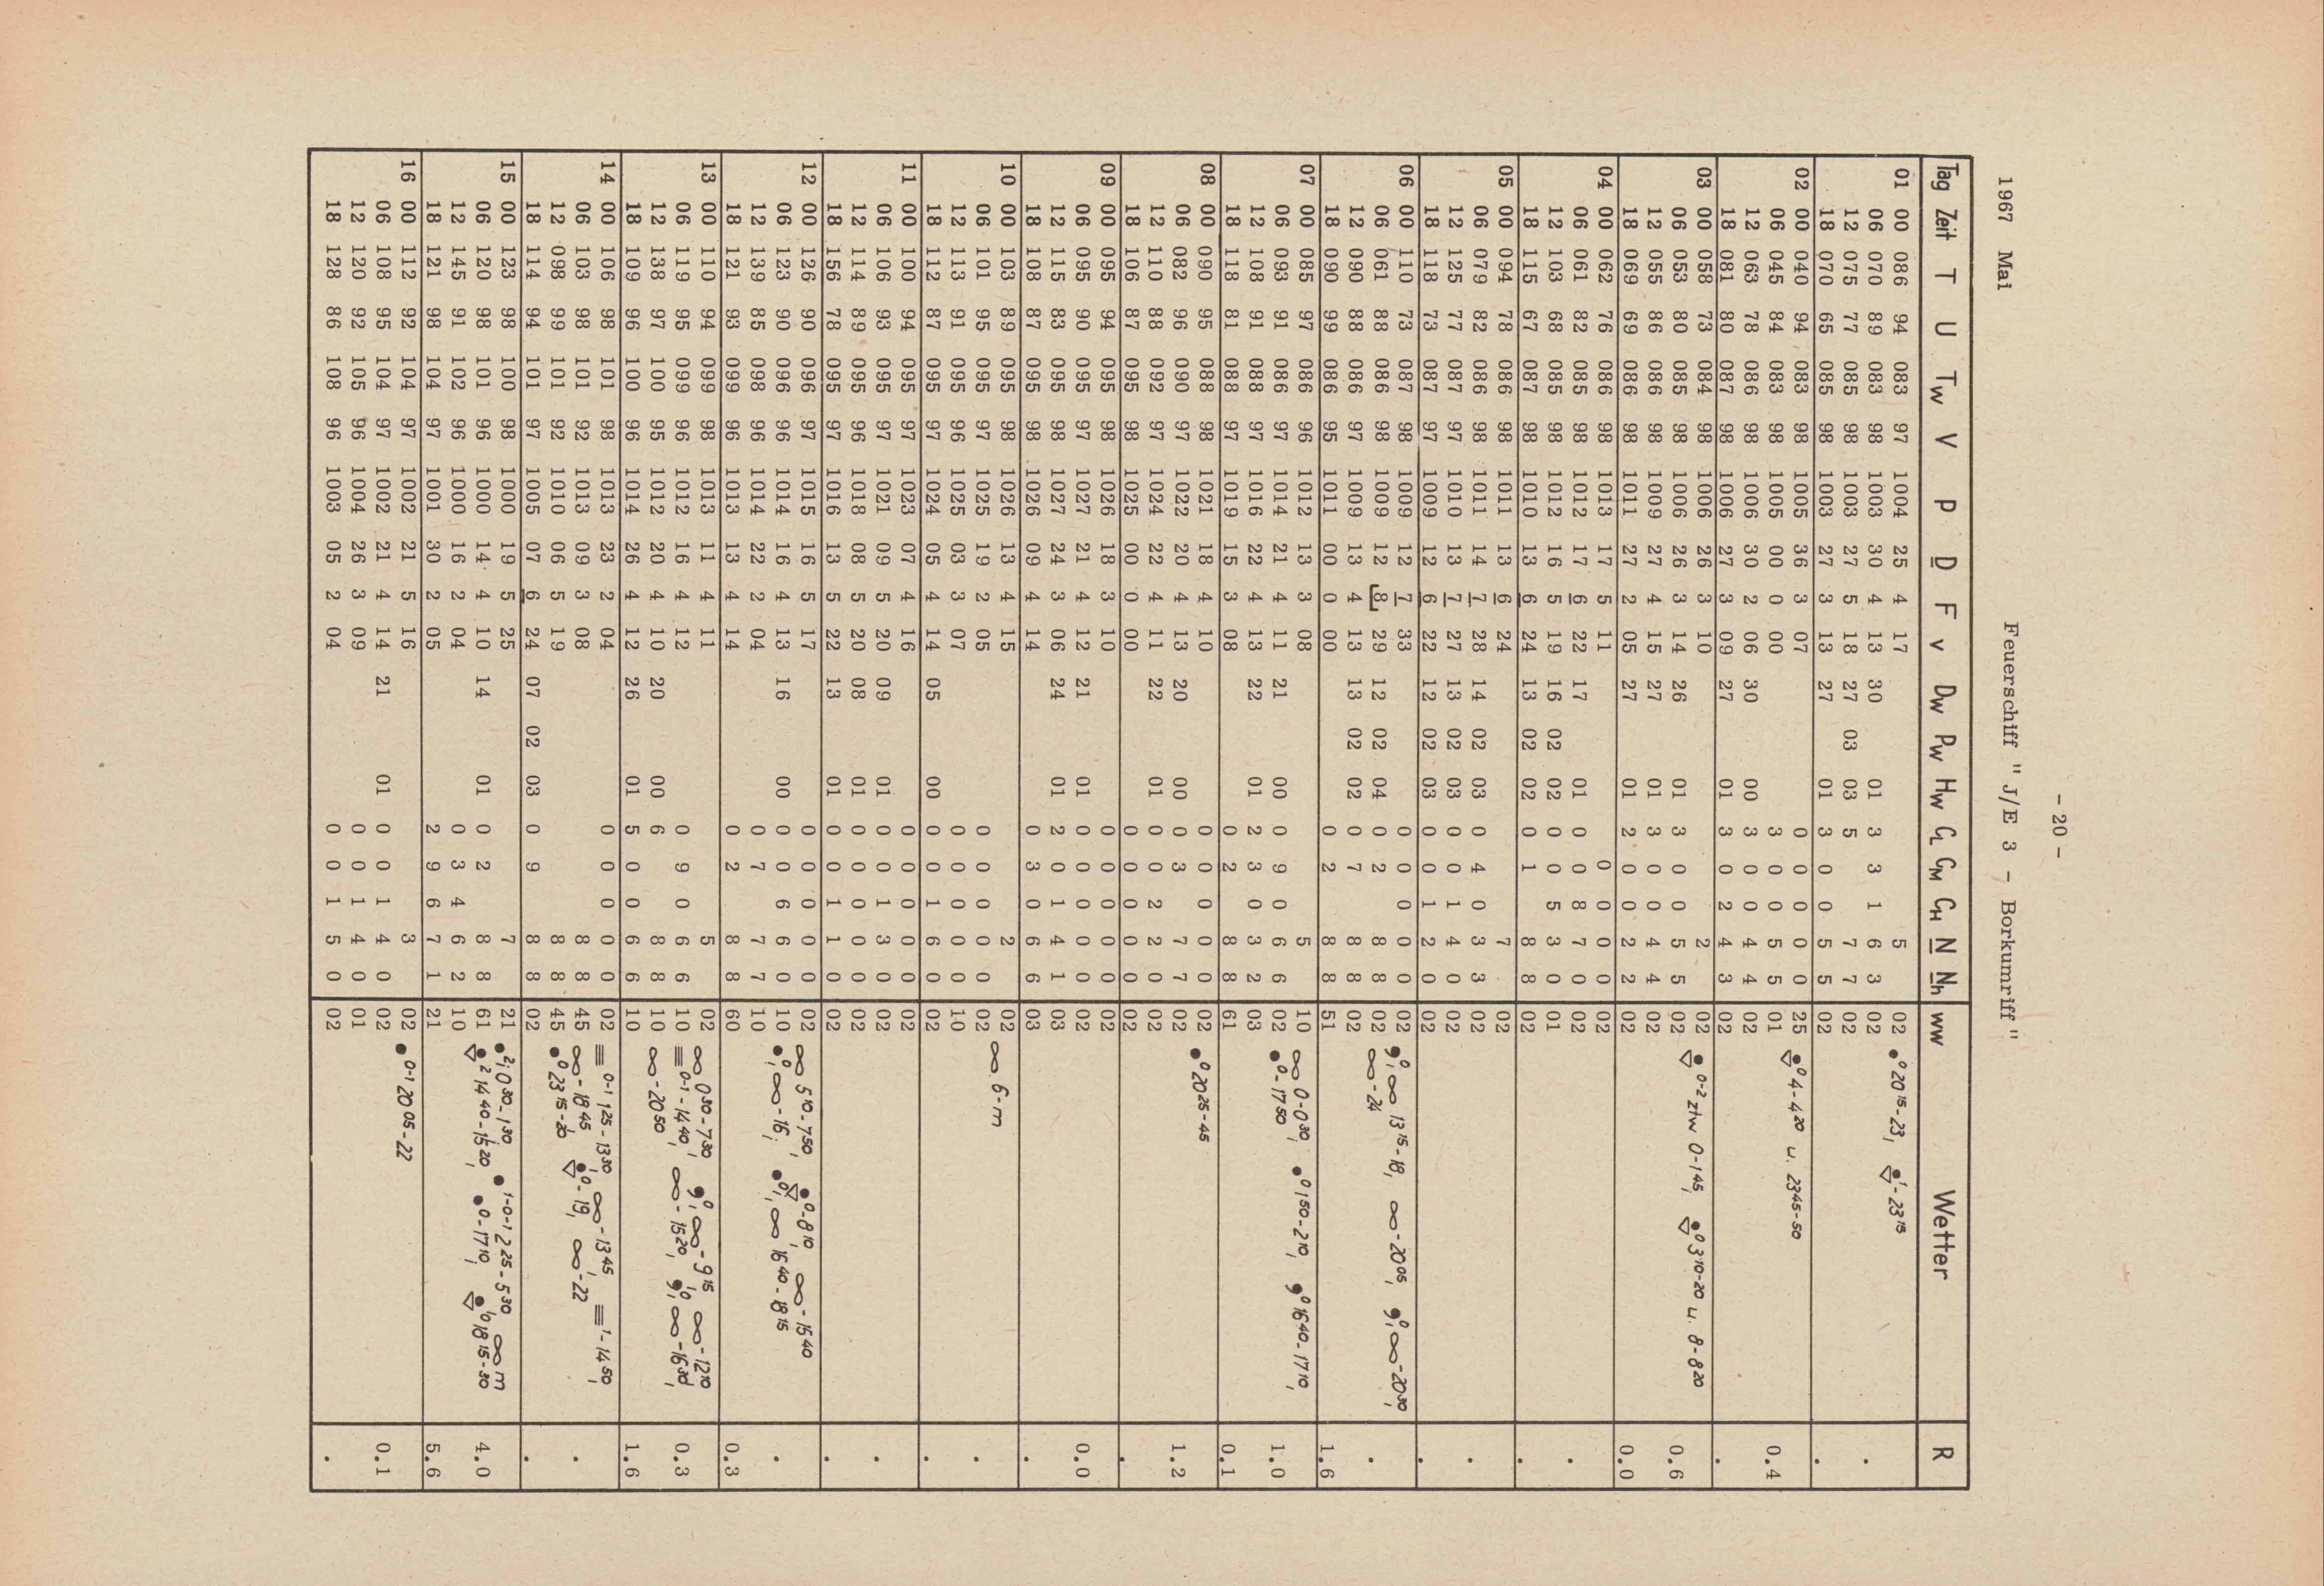 - 20 -
1967 Mai Feuerschiff " J/E 3 - Borkumriff "
Tag Zeit T U Tw V P D F v Dw Pw Hw CL CM CH N Nh ww Wetter R
01 00 086 94 083 97 1004 25 4 17 5 02 ●⁰ 20¹⁵-23,
06 070 89 083 98 1003 30 4 13 30 01 3 3 1 6 3 02 .
12 075 77 085 98 1003 27 5 18 27 03 03 5 7 7 02
18 070 65 085 98 1003 27 3 13 27 01 3 0 0 5 5 02 .
02 00 040 94 083 98 1005 36 3 07 0 0 0 0 0 25 4-4²⁰ u. 23⁴⁵-50
06 045 84 083 98 1005 00 0 00 3 0 0 5 5 01 0.4
12 063 78 086 98 1006 30 2 06 30 00 3 0 0 4 4 02
18 081 80 087 98 1006 27 3 09 27 01 3 0 2 4 3 02 .
03 00 058 73 084 98 1006 26 3 10 2 02 ztw 0-1⁴⁵, 3¹⁰-20 u. 8-8²⁰
06 053 80 085 98 1006 26 3 14 26 01 3 0 0 5 5 02 0.6
12 055 86 086 98 1009 27 4 15 27 01 3 0 0 4 4 02
18 069 69 086 98 1011 27 2 05 27 01 2 0 0 2 2 02 0.0
04 00 062 76 086 98 1013 17 5 11 0 0 0 02
06 061 82 085 98 1012 17 6 22 17 01 0 0 8 7 0 02 .
12 103 68 085 98 1012 16 5 19 16 02 02 0 0 5 3 0 01
18 115 67 087 98 1010 13 6 24 13 02 02 0 1 8 8 02 .
05 00 094 78 086 98 1011 13 6 24 7 02
06 079 82 086 98 1011 14 7 28 14 02 03 0 4 0 3 3 02 .
12 125 77 087 97 1010 13 7 27 13 02 03 0 0 1 4 0 02
18 118 73 087 97 1009 12 6 22 12 02 03 0 0 1 2 0 02 .
06 00 110 73 087 98 1009 12 7 33 0 0 0 0 0 02 ∞ 13¹⁵-18, ∞-20⁰⁵, ∞-20³⁰,
06 061 88 086 98 1009 12 8 29 12 02 04 0 2 8 8 02 ∞-24 .
12 090 88 086 97 1009 13 4 13 13 02 02 0 7 8 8 02
18 090 99 086 95 1011 00 0 00 0 2 8 8 51 1.6
07 00 085 97 086 96 1012 13 3 08 5 10 ∞ 0-0³⁰, ●⁰ 1⁵⁰-2¹⁰, 16⁴⁰-17¹⁰,
06 093 91 086 97 1014 21 4 11 21 00 0 9 0 6 6 02 ●⁰-17⁵⁰ 1.0
12 108 91 088 97 1016 22 4 13 22 01 2 3 0 3 2 03
18 118 81 088 97 1019 15 3 08 0 2 8 8 61 0.1
08 00 090 95 088 98 1021 18 4 10 0 0 0 0 0 02 ●⁰ 20²⁵-45
06 082 96 090 97 1022 20 4 13 20 00 0 3 7 7 02 1.2
12 110 88 092 97 1024 22 4 11 22 01 0 0 2 2 0 02
18 106 87 095 98 1025 00 0 00 0 0 0 0 0 02 .
09 00 095 94 095 98 1026 18 3 10 0 0 0 0 0 02
06 095 90 095 97 1027 21 4 12 21 01 0 0 0 0 0 02 0.0
12 115 83 095 98 1027 24 3 06 24 01 2 0 1 4 1 03
18 108 87 095 98 1026 09 4 14 0 3 0 6 6 03 .
10 00 103 89 095 98 1026 13 4 15 2 02 ∞ 6-m
06 101 95 095 97 1025 19 2 05 0 0 0 0 0 02 .
12 113 91 095 96 1025 03 3 07 0 0 0 0 0 10
18 112 87 095 97 1024 05 4 14 05 00 0 0 1 6 0 02 .
11 00 100 94 095 97 1023 07 4 16 0 0 0 0 0 02
06 106 93 095 97 1021 09 5 20 09 01 0 0 1 3 0 02 .
12 114 89 095 96 1018 08 5 20 08 01 0 0 0 0 0 02
18 156 78 095 97 1016 13 5 22 13 01 0 0 1 1 0 02 .
12 00 126 90 096 97 1015 16 5 17 0 0 0 0 0 02 ∞ 5¹⁰-7⁵⁰, ⁰-8¹⁰, ∞-15⁴⁰
06 123 90 096 96 1014 16 4 13 16 00 0 0 6 6 0 10 ●⁰, ∞-16, ●⁰, ∞ 16⁴⁰-18¹⁵ .
12 139 85 098 96 1014 22 2 04 0 7 7 7 10
18 121 93 099 96 1013 13 4 14 0 2 8 8 60 0.3
13 00 110 94 099 98 1013 11 4 11 5 02 ∞ 0³⁰-7³⁰ ∞-9¹⁵ ∞-12¹⁰
06 119 95 099 96 1012 16 4 12 0 9 0 6 6 10 ≡⁰⁻¹-14⁴⁰, ∞-15²⁰, ∞-16³⁰, 0.3
12 138 97 100 95 1012 20 4 10 20 00 6 8 8 10 ∞-20⁵⁰
18 109 96 100 96 1014 26 4 12 26 01 5 0 0 6 6 10 1.6
14 00 106 98 101 98 1013 23 2 04 0 0 0 0 0 02 ≡⁰⁻¹ 1²⁵-13³⁰, ∞-13⁴⁵, ≡¹-14⁵⁰,
06 103 98 101 92 1013 09 3 08 8 8 45 ∞-18⁴⁵ ⁰-19, ∞-22 .
12 098 99 101 92 1010 06 5 19 8 8 45 ●⁰ 23¹⁵-20
18 114 94 101 97 1005 07 6 24 07 02 03 0 9 8 8 02 .
15 00 123 98 100 98 1000 19 5 25 7 21 0³⁰-1³⁰, ●¹⁻⁰⁻¹ 2²⁵-5³⁰ ∞ m
06 120 98 101 96 1000 14 4 10 14 01 0 2 8 8 61 ² 14⁴⁰-15²⁰, ●⁰-17¹⁰, 18¹⁵-30 4.0
12 145 91 102 96 1000 16 2 04 0 3 4 6 2 10
18 121 98 104 97 1001 30 2 05 2 9 6 7 1 21 5.6
16 00 112 92 104 97 1002 21 5 16 3 02 ●⁰⁻¹ 20⁰⁵-22
06 108 95 104 97 1002 21 4 14 21 01 0 0 1 4 0 02 0.1
12 120 92 105 96 1004 26 3 09 0 0 1 4 0 01
18 128 86 108 96 1003 05 2 04 0 0 1 5 0 02 .